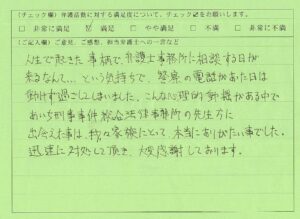 (チェック欄) 弁護活動に対する満足度について、チェック☑をお願いします。
□ 非常に満足 ☑ 満足 □ やや満足 □ 不満 □ 非常に不満
(ご記入欄) ご意見、ご感想、担当弁護士への一言など
人生で起きた事柄で、弁護士事務所に相談する日が
来るなんて…という気持ちで、警察の電話があった日は
動けず過ごしてしまいました。こんな心理的 がある中で
あいち刑事事件総合法律事務所の先生方に
出会えた事は、我々家族にとって、本当にありがたい事でした。
迅速に対処して頂き、大変感謝しております。